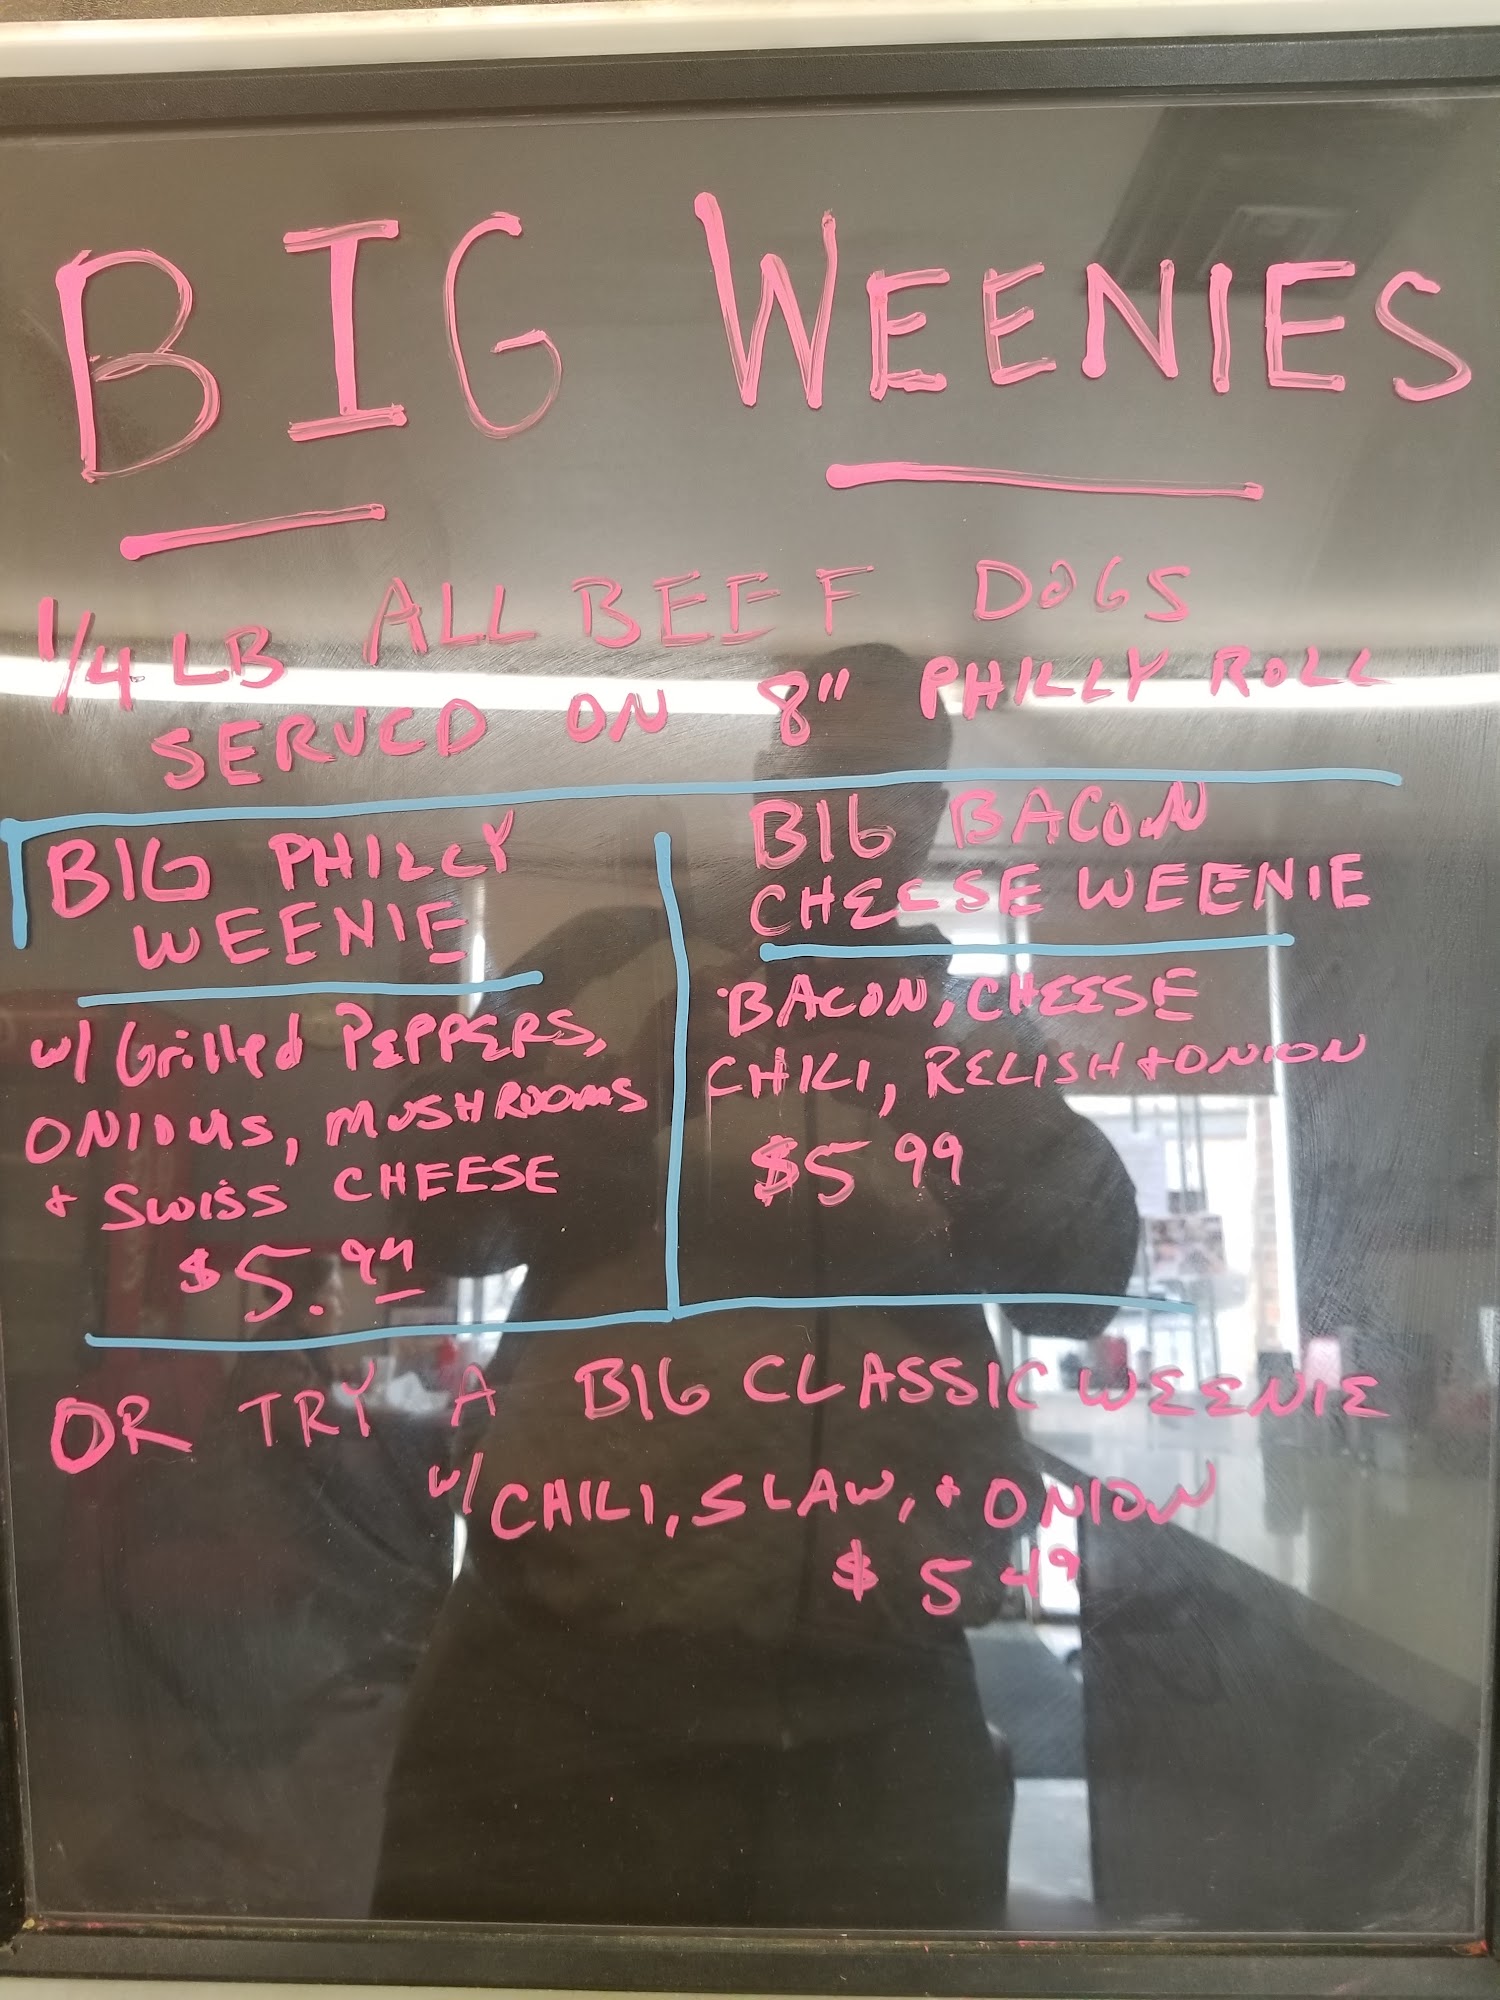 BIG WEENIES
1/4 LB ALL BEEF DOGS
SERVED ON 8" PHILLY ROLL
BIG PHILLY
WEENIE
w/ Grilled PEPPERS,
ONIONS, MUSHROOMS
+ SWISS CHEESE
$5.99
BIG BACON
CHEESE WEENIE
BACON, CHEESE
CHILI, RELISH + ONION
$5 99
OR TRY A BIG CLASSIC WEENIE
w/ CHILI, SLAW, + ONION
$ 5 49